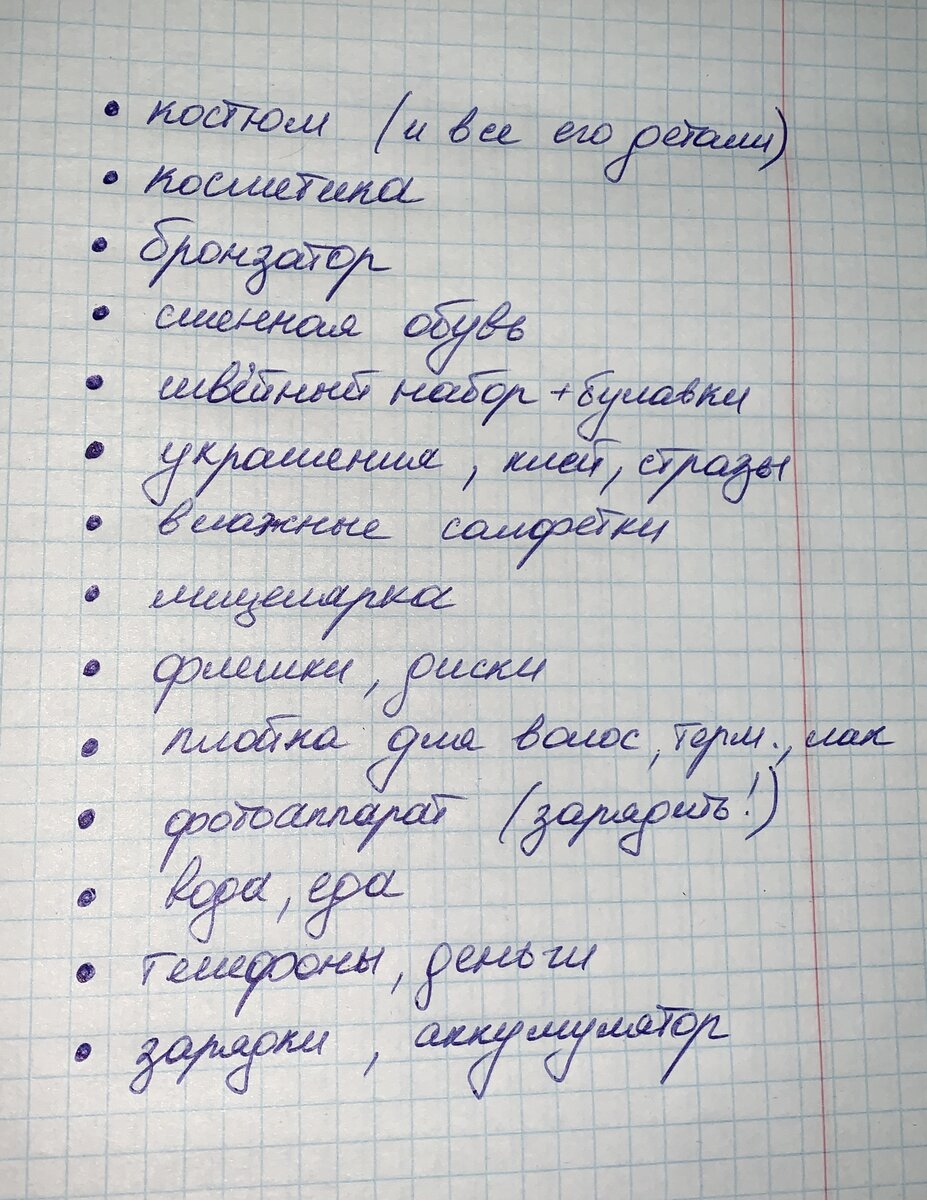 • костюм (и все его детали)
• косметика
• бронзатор
• сменная обувь
• швейный набор + булавки
• украшения, клей, стразы
• влажные салфетки
• мицелярка
• флешки, диски
• плойка для волос, терм., лак
• фотоаппарат (зарядить!)
• вода, еда
• телефоны, деньги
• зарядки, аккумулятор